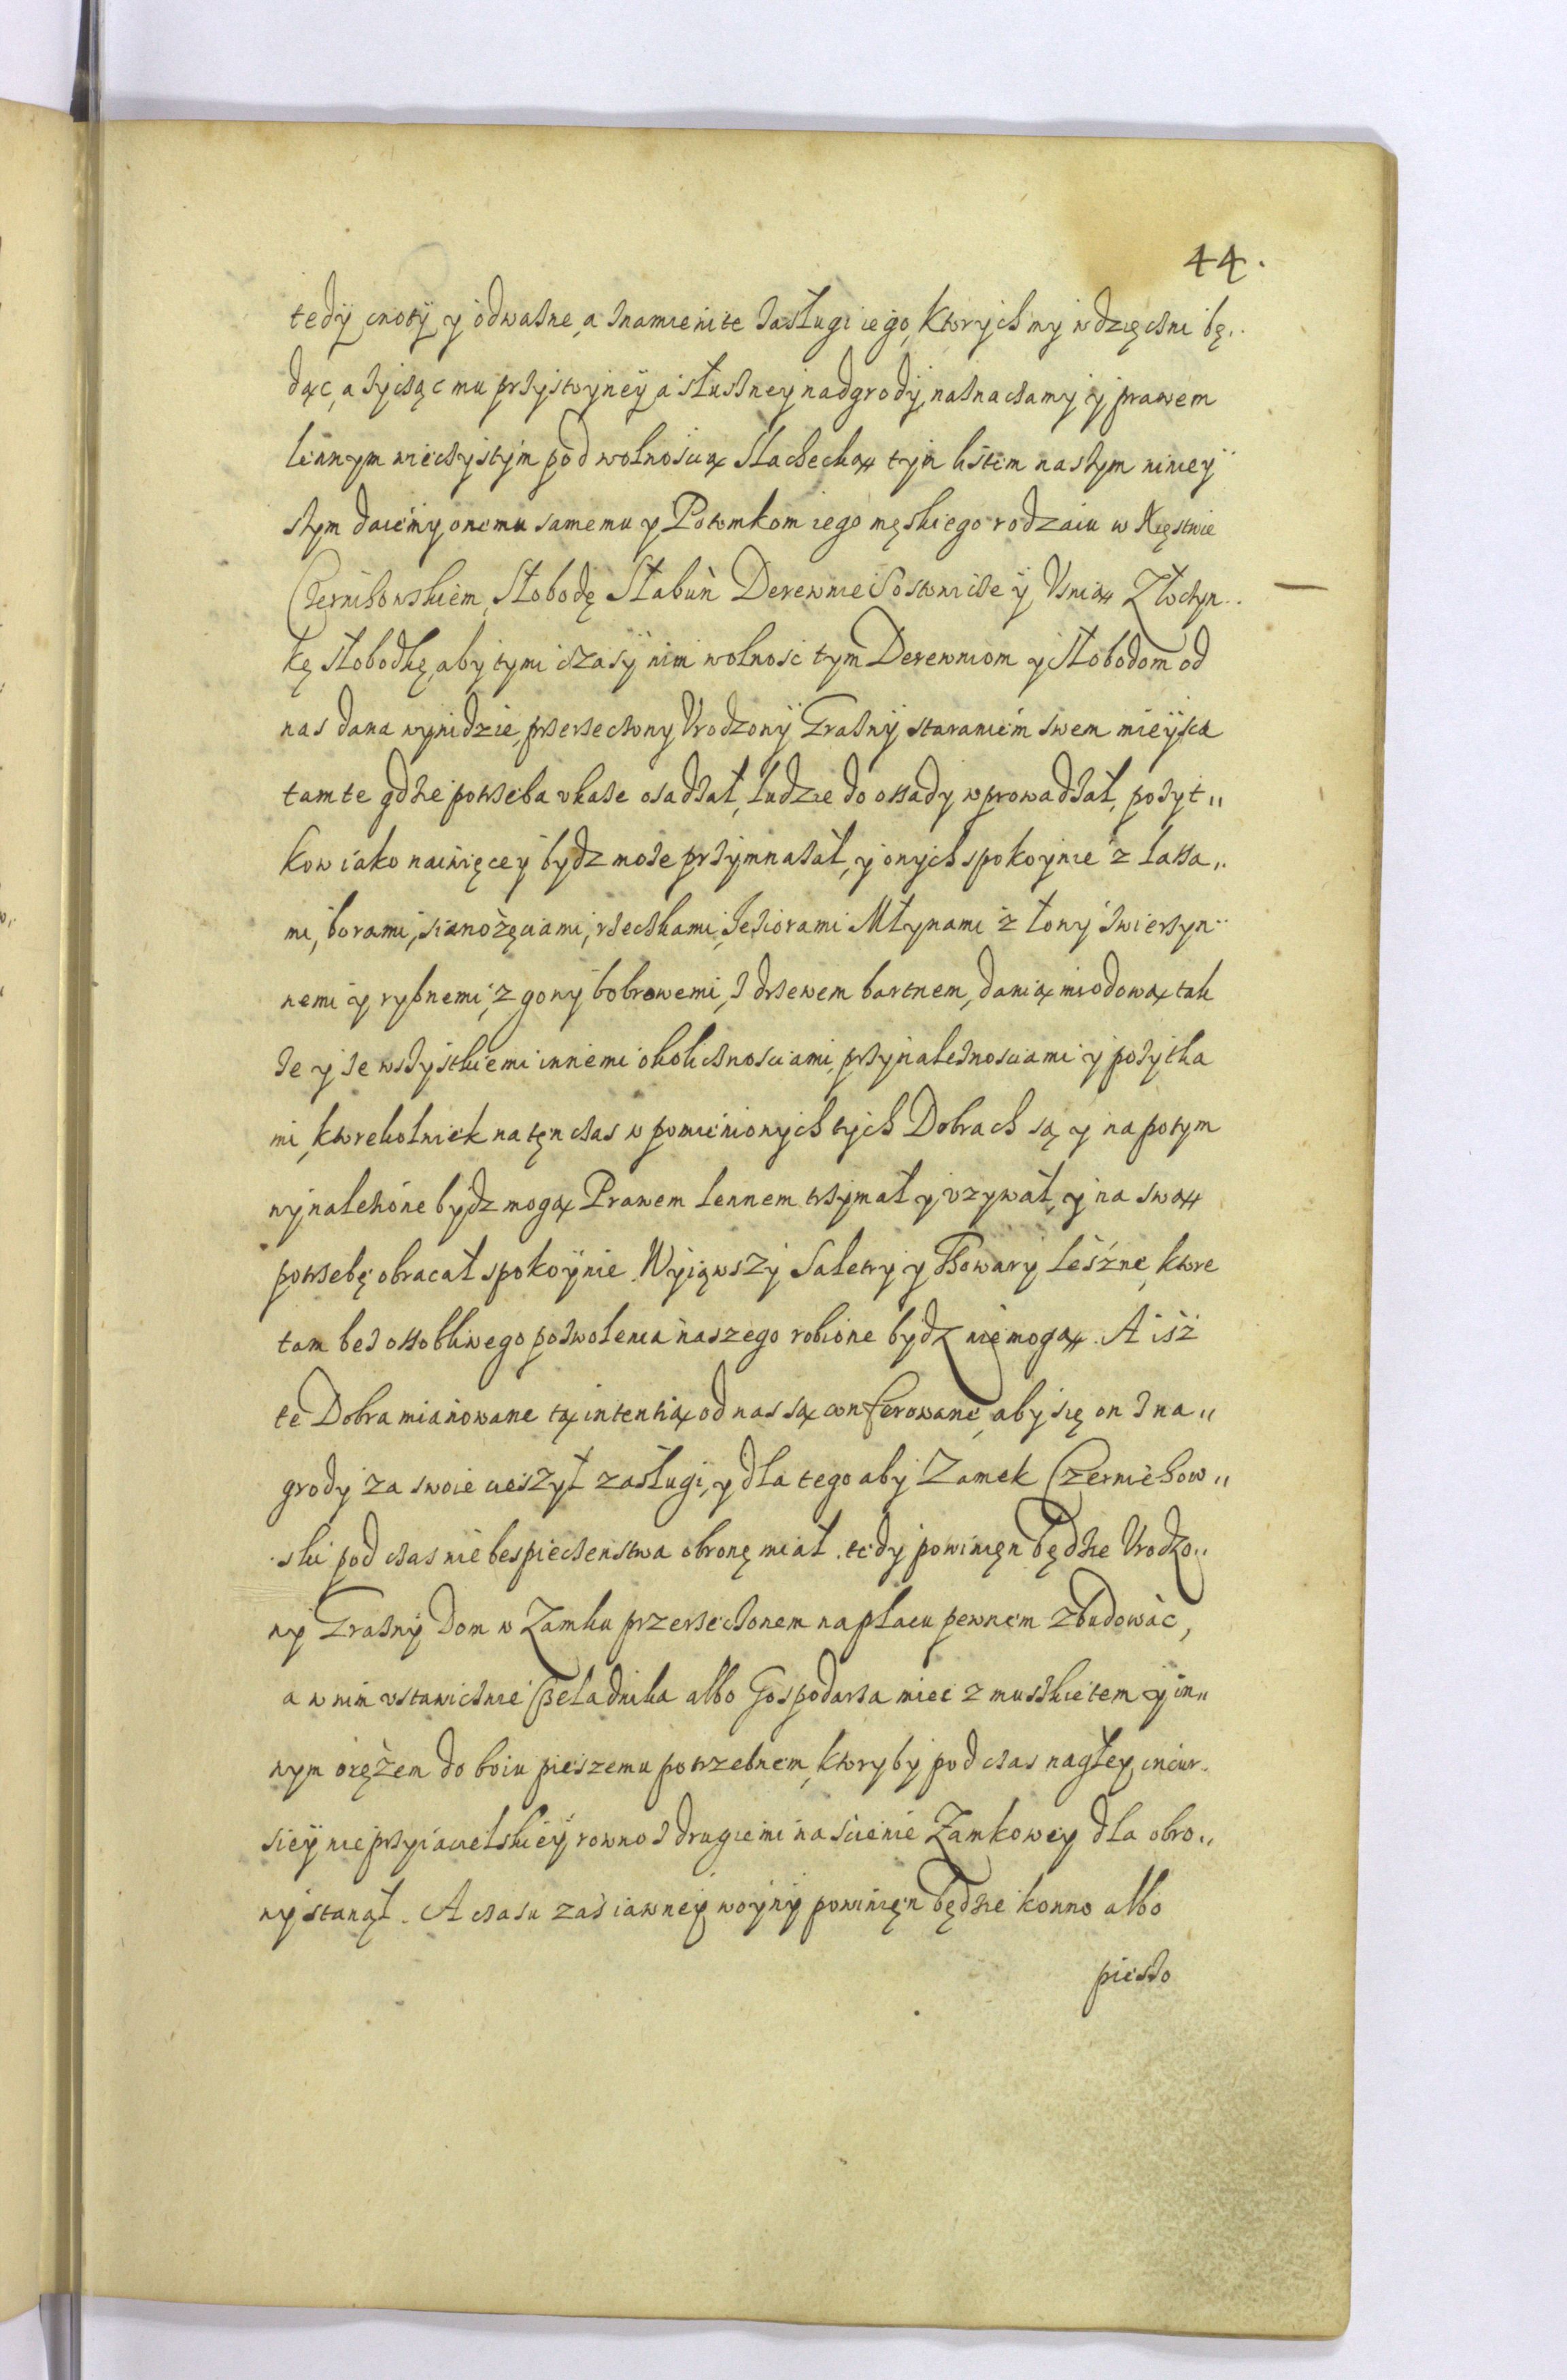 44.
tedy cnoty y odważne, a znamienite zasługi iego, ktorych my wdzięczni bę„
dąc, a życząc mu przystoyney a słuszney nadgrody, naznaczamy y prawem
lennym wieczystym pod wolnością slachecką tym listem naszym niniey
szym daiemy onemu samemu y Potomkom iego męskiego rodzaiu w Xięstwie
Czernihowskiem, Słobodę Słabuń Derewnie Sostowicze y Usnią Złoczyn„
kę słobodkę, aby tymi czasy nim wolnosc tym Derewniom y Słobodom od
nas dana wynidzie, przerzeczony Vrodzony Grazny staraniem swem mieysca
tamte gdzie potrzeba vkaze osadzał, ludzie do ossady wprowadzał, pożyt„
kow iako naiwięcey bydz moze przymnażał, y onych spokoynie z lassa„
mi, borami, sianożęciami, rzeczkami, Jeziorami Młynami z łowy zwierzyn„
nemi y rybnemi, z gony bobrowemi, z drzewem bartnem, danią miodową tak
ze y ze wszystkiemi innemi okolicznosciami, przynależnosciami y pożytka
mi, ktorekolwiek na tęn czas w pomienionych tych Dobrach są y napotym
wynalezione bydz mogą Prawem lennem trzymał y vzywał, y na swą
potrzebę obracał spokoynie. Wyiąwszy Saletry y Towary leśżne, ktore
tam bez ossobliwego pozwolenia naszego robione bydz niemogą. A isz
te Dobra mianowane tą intentią od nas są conferowane, aby się on z na„
grody za swoie cieszył zasługi, y dla tego aby Zamek Czerniehow„
ski pod czas niebespieczenstwa obronę miał. tedy powinięn będzie Vrodzo„
ny Grazny Dom w Zamku przerzeczonem na placu pewnem zbudowac,
a w nim vstawicznie Czeladnika albo Gospodarza miec z muszkietem y in„
nym orężem do boiu pieszemu potrzebnem, ktoryby pod czas nagłey incur„
siey nieprzyiacielskiey rowno z drugiemi na scienie Zamkowey dla obro„
ny stanął. A czasu zaś iawney woyny powinięn będzie konno albo
pieszo